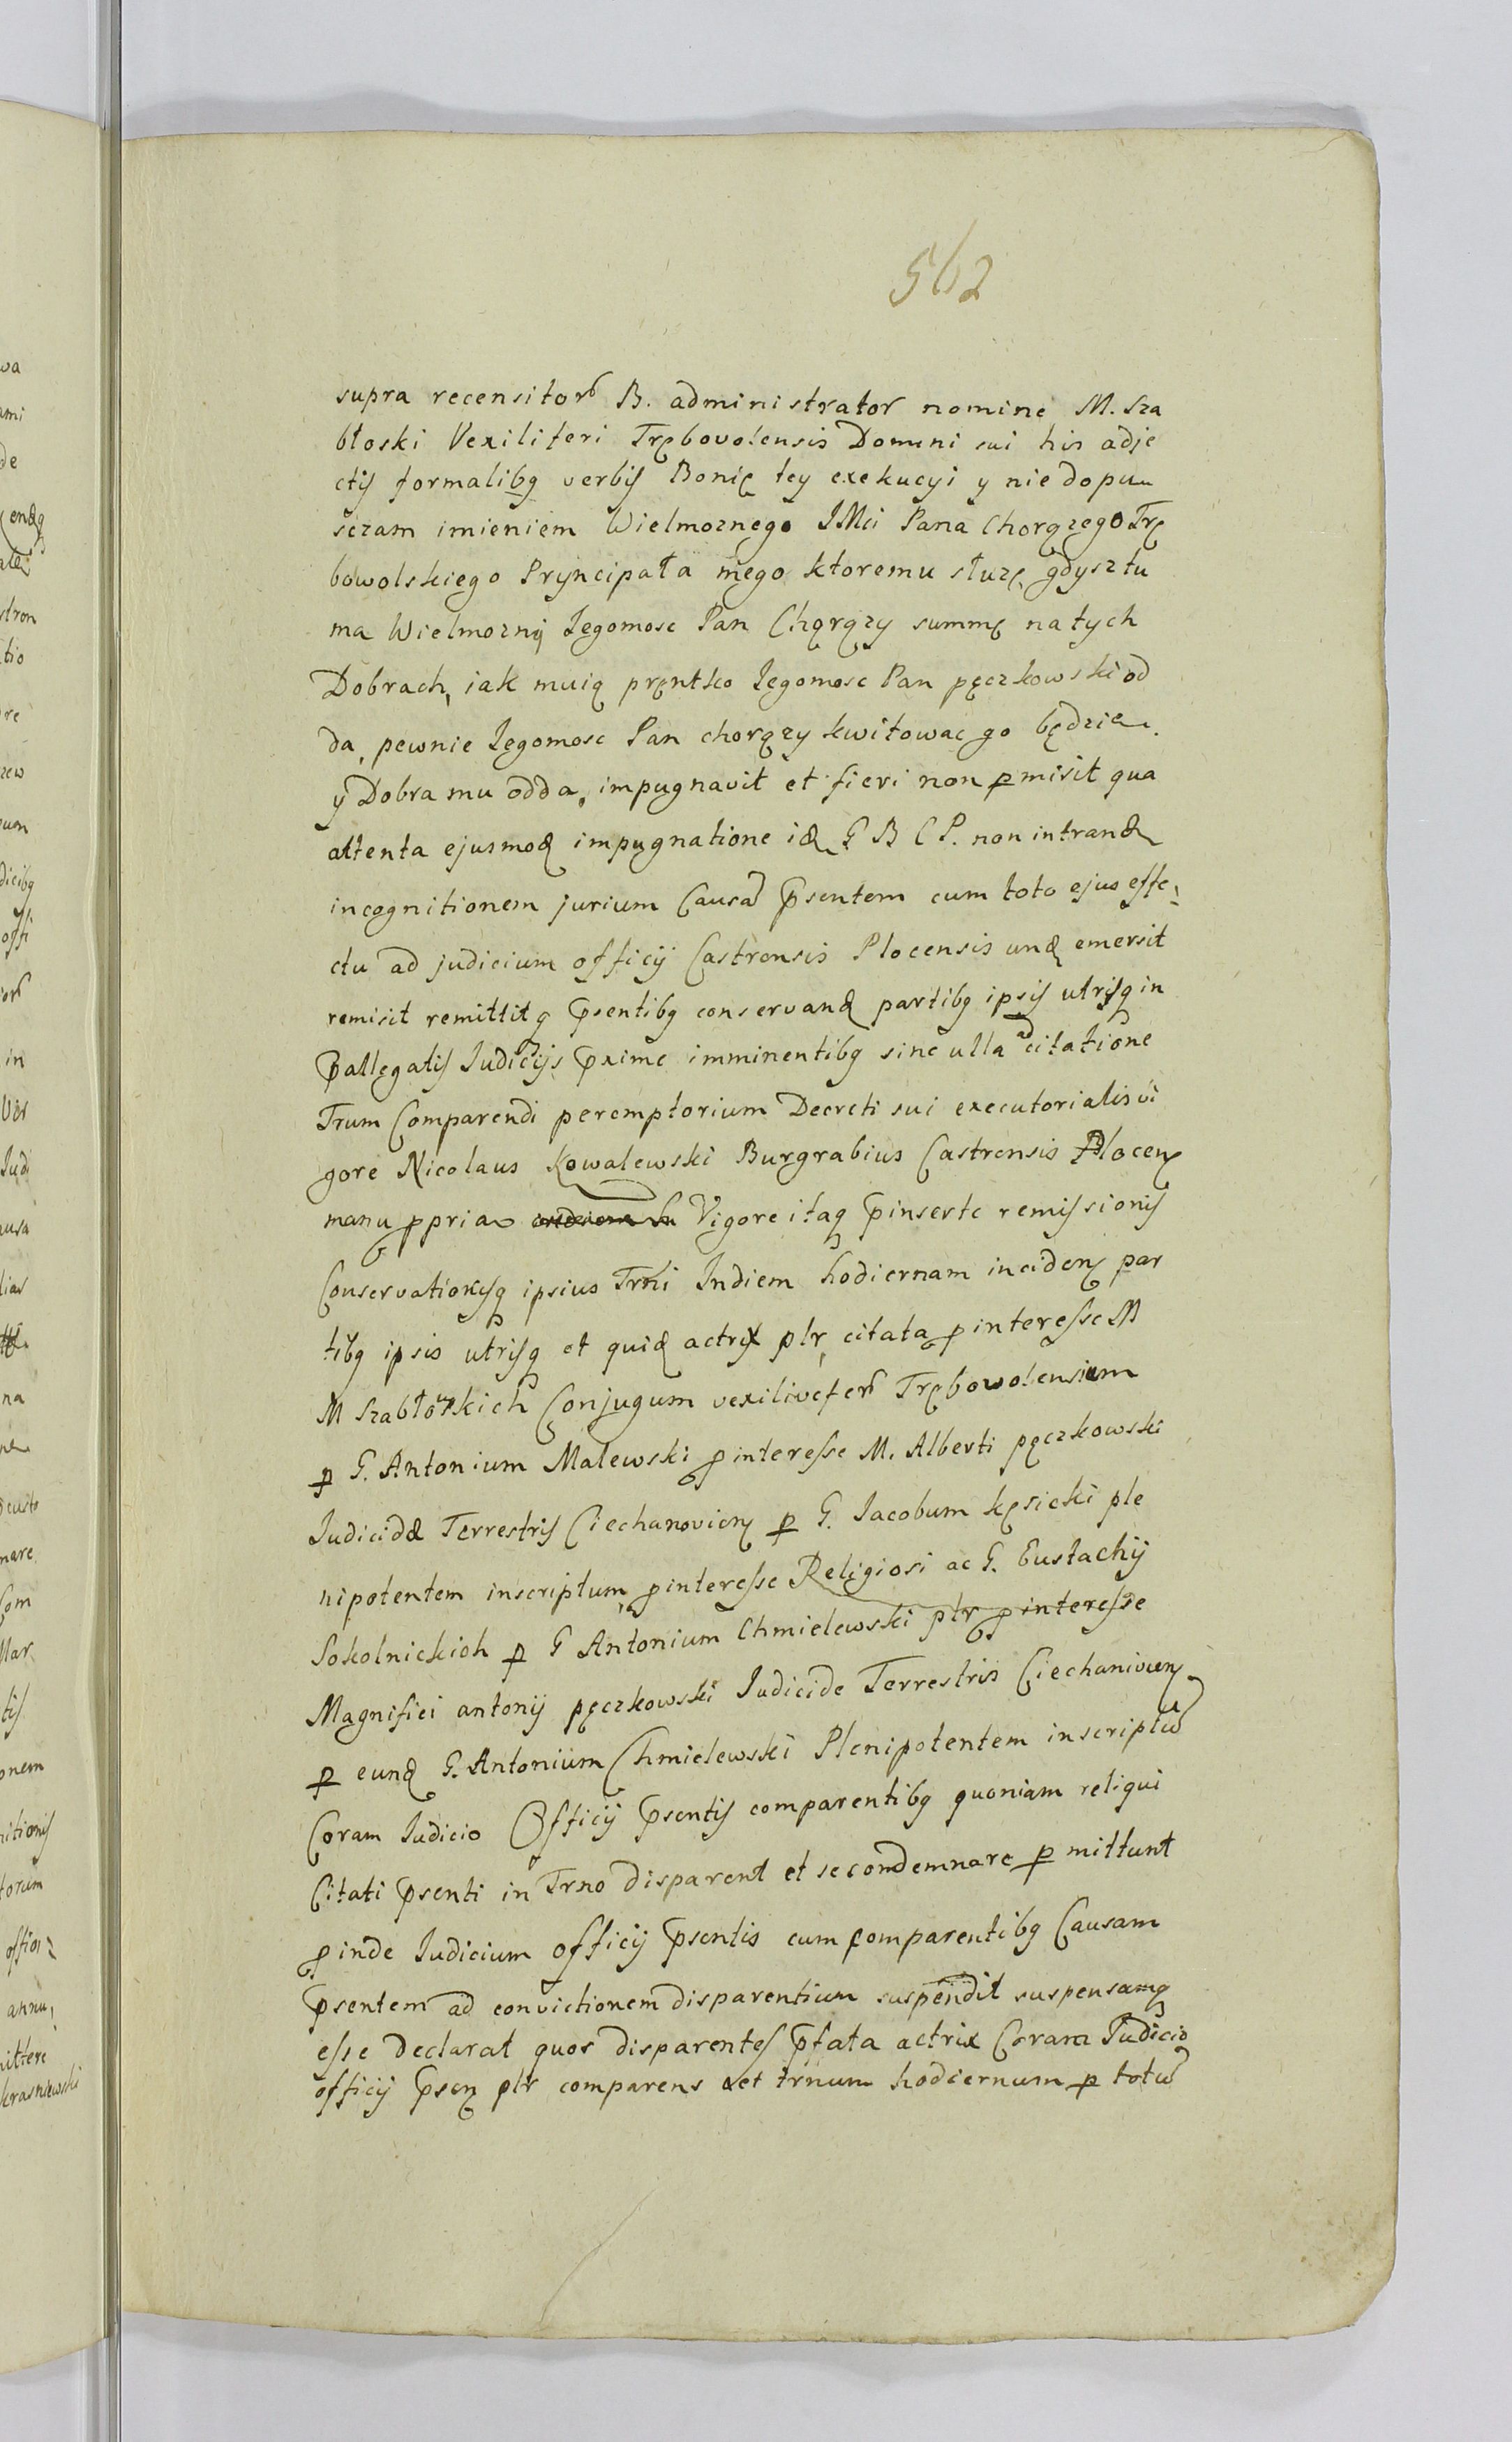 562
supra recensitor B. administrator nomine M. Sza
błoski Vexiliferi Trębovolensis Domini sui his adje
ctis formalibq verbis Bonię tey exekucyi y nie dopu
sczam imieniem Wielmoznego JMci Pana Chorązego Trę
bowolskiego Pryncipała mego ktoremu słuzę gdysz tu
ma Wielmozny Jegomosc Pan Chorązy summę na tych
Dobrach, iak muią prętko Jegomosc Pan pęczkowski od
da, pewnie Jegomosc Pan chorązy kwitowac go będzie
y Dobra mu odda, impugnavit et fieri non pmisit qua
attenta ejusmod impugnatione id G B C P. non intrand
in cognitionem jurium Causa psentem cum toto ejus effe
ctu ad judicium officij Castrensis Plocensis und emersit
remisit remittitq psentibq conservand partibq ipsis utrisq in
pallegatis Judicijs pxime imminentibq sine ulla adcitatione
Trum Comparendi peremptorium Decreti sui executorialis vi
gore Nicolaus Kowalewski Burgrabius Castrensis Plocen
manu ppria Vigore itaq pinserte remissionis
Conservationisq ipsius Trni In diem hodiernam inciden par
tibq ipsis utrisq et quid actrix ptr citata p interesse M
M Szabłoskich Conjugum vexilivefer Trębowolensium
p G. Antonium Malewski p interesse M. Alberti pęczkowski
Judicidæ Terrestris Ciechanovien p G. Jacobum kęsicki ple
nipotentem inscriptum p interesse Religiosi ac G. Eustachij
Sokolnickich p G Antonium Chmielewski ptr p interesse
Magnifici antonij pęczkowski Judicide Terrestris Ciechanivien
p eund G. Antonium Chmielewski Plenipotentem inscriptu
Coram Judicio Officij psentis comparentibq quoniam reliqui
Citati psenti in Trno disparent et se condemnare p mittunt
p inde Judicium officij psentis cum comparentibq Causam
psentem ad convictionem disparentium suspendit suspensamq
esse declarat quos disparentes pfata actrix Coram Judicio
officij psen ptr comparens et trnum hodiernum p totu